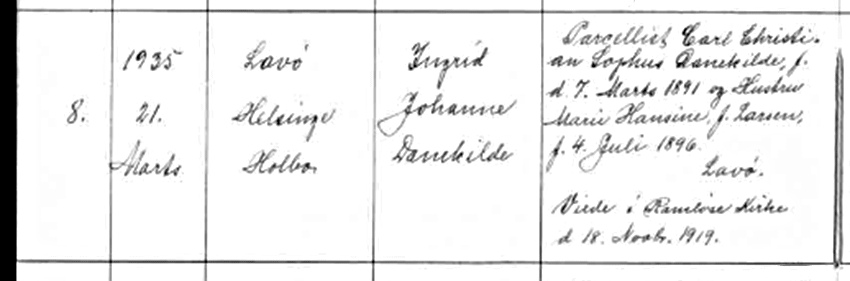 8.
1935
21.
Marts
Lavø
Helsinge
Holbo
Ingrid
Johanne
Danekilde
Parcellist Carl Christi-
an Sophus Danekilde, f.
d. 7. Marts 1891 og Hustru
Marie Hansine, f. Larsen,
f. 4. Juli 1896.
Lavø.
Viede i Ramløse Kirke
d 18. Novbr. 1919.